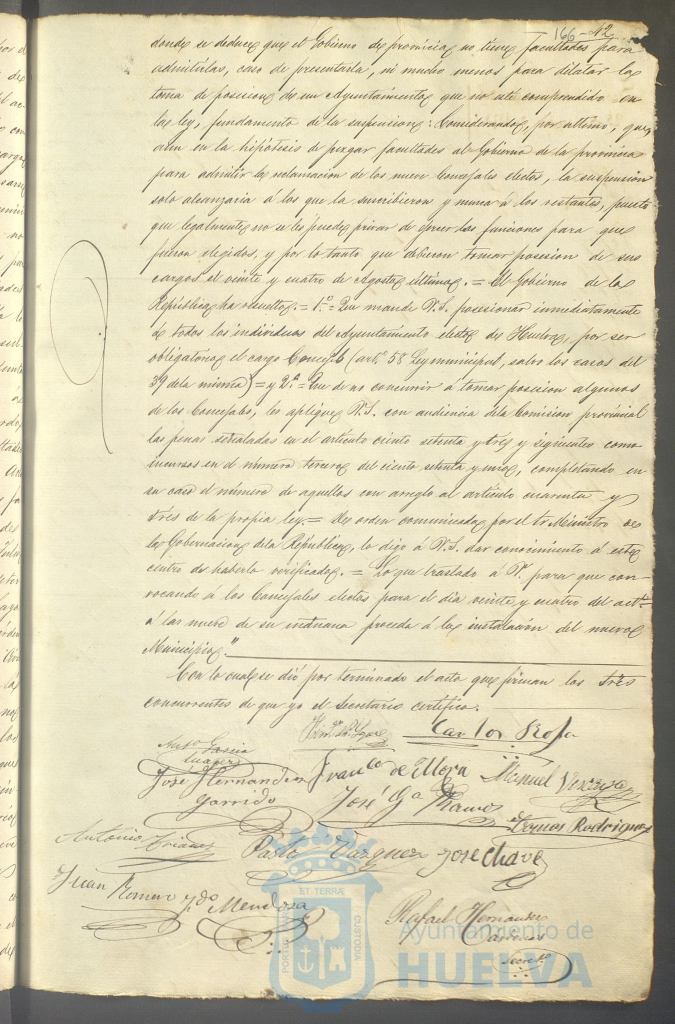 166-42
donde se deduce que el Gobierno de provincia no tiene facultades para
admitirlas, caso de presentarla, ni mucho menos para dilatar la
toma de posesion de un Ayuntamiento que no esté comprendido en
la ley, fundamento de la suspension: Considerando, por último, que,
aun en la hipótesis de juzgar facultades al Gobierno de la provincia
para admitir la reclamacion de los nueve Concejales electos, la suspension
solo alcanzaria á los que la suscribieron y nunca á los restantes, puesto
que legalmente no se les puede privar de ejercer las funciones para que
fueron elegidos, y por lo tanto que debieron tomar posesion de sus
cargos el veinte y cuatro de Agosto último. = El Gobierno de la
República ha resuelto. = 1.º = Que mande V.S. posesionar inmediatamente
á todos los individuos del Ayuntamiento electo de Huelva, por ser
obligatorio el cargo Concejil (art.º 58 Ley municipal, salvo los casos del
39 de la misma) = y 2.º = Que de no concurrir á tomar posesion algunos
de los Concejales, les aplique V.S. con audiencia de la Comision provincial
las penas señaladas en el artículo ciento setenta y tres y siguientes como
incursos en el número tercero del ciento setenta y uno, completando en
su caso el número de aquellos con arreglo al artículo cuarenta y
tres de la propia ley. = De orden comunicada por el Sr Ministro de
la Gobernacion de la República, lo digo á V.S. dar conocimiento á este
centro de haberlo verificado. = Lo que traslado á V. para que con-
vocando á los Concejales electos para el dia veinte y cuatro del act.l
á las nueve de su mañana proceda á la instalación del nuevo
Municipio."
Con lo cual se dió por terminado el acto que firman los Sres
concurrentes de que yo el Secretario certifico.
Carlos Rosa
Ant.o Garcia
Suarez
José Hernandez
Garrido
Fran.co de Mora
Manuel
José G.a Ramos
Rodriguez
Antonio
Pablo Vazquez
José Chaves
Juan Romero y
Mendoza
Rafael Hernandez
Secret.o
ET TERRÆ
PORTUS
CUSTODIA
Ayuntamiento de
HUELVA